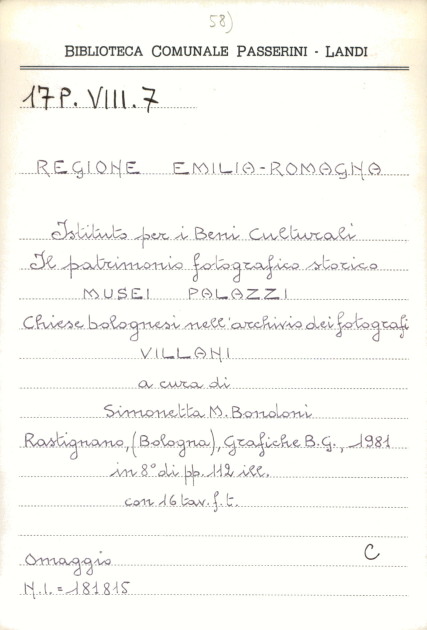 58)
BIBLIOTECA COMUNALE PASSERINI - LANDI
17P. VIII. 7
REGIONE EMILIA-ROMAGNA
Istituto per i Beni Culturali
Il patrimonio fotografico storico
MUSEI PALAZZI
Chiese bolognesi nell'archivio dei fotografi
VILLANI
a cura di
Simonetta M. Bondoni
Rastignano, (Bologna), Grafiche B.G., 1981
in 8° di pp. 112 ill.
con 16 tav. f. t.
C
Omaggio
N.I. = 181815